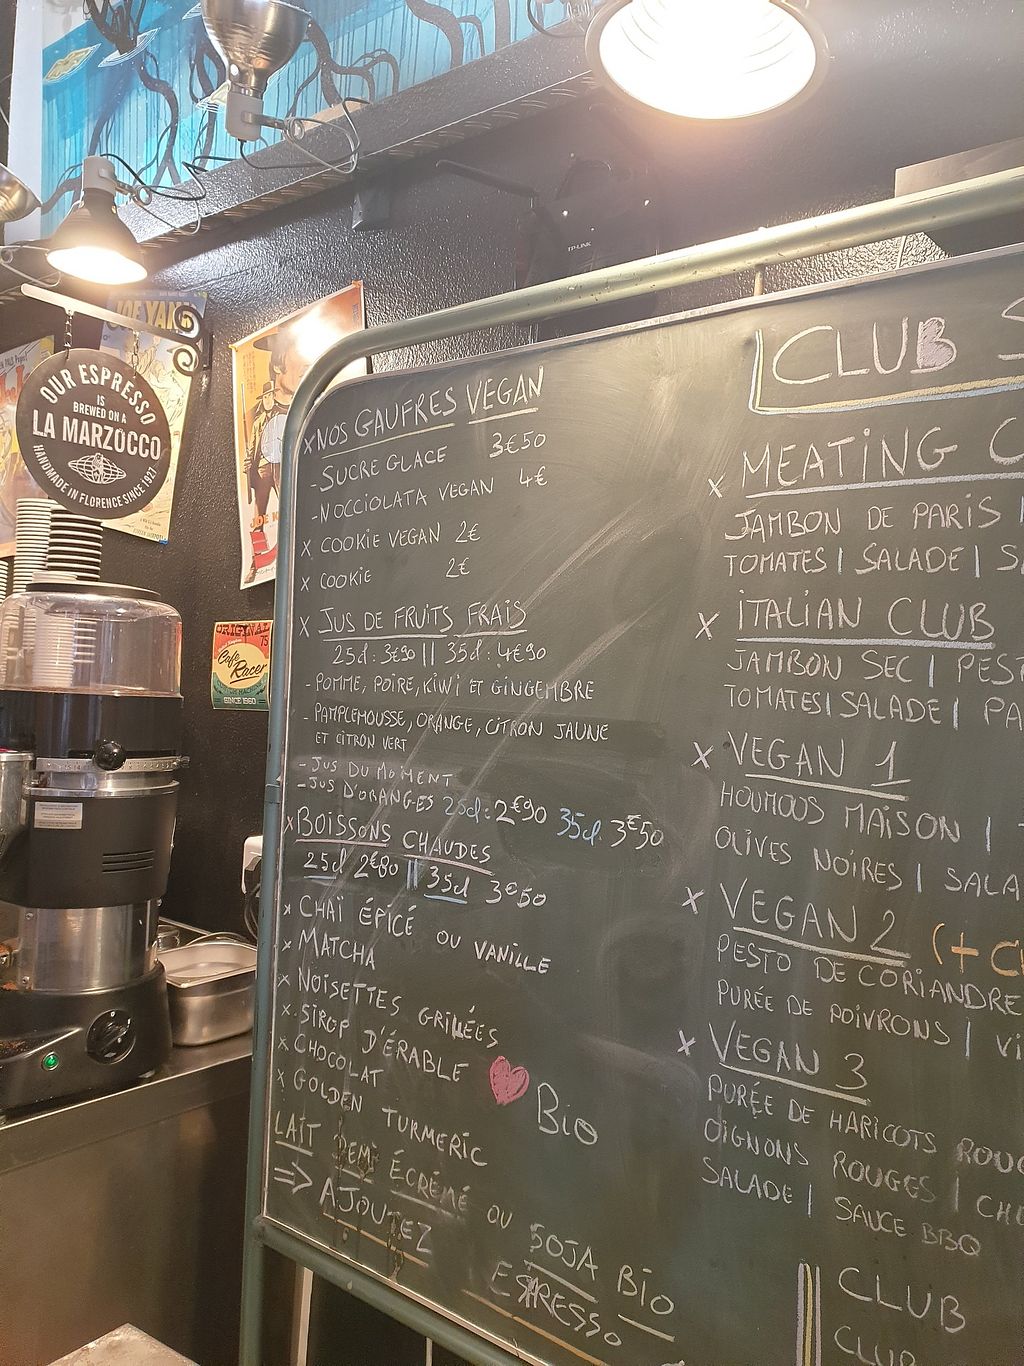 TP-LINK
JOE YAN
OUR ESPRESSO
IS
BREWED ON A
LA MARZOCCO
HANDMADE IN FLORENCE SINCE 1927
ORIGINAL
75
Cafe
Racer
SINCE 1960
x NOS GAUFRES VEGAN
- SUCRE GLACE 3€50
- NOCCIOLATA VEGAN 4€
x COOKIE VEGAN 2€
x COOKIE 2€
x JUS DE FRUITS FRAIS
25cl : 3€90 || 35cl : 4€90
- POMME, POIRE, KIWI ET GINGEMBRE
- PAMPLEMOUSSE, ORANGE, CITRON JAUNE
ET CITRON VERT
- JUS DU MOMENT
- JUS D'ORANGES 25cl : 2€90 35cl 3€50
x BOISSONS CHAUDES
25cl 2€80 || 35cl 3€50
x CHAÏ ÉPICÉ OU VANILLE
x MATCHA
x NOISETTES GRILLÉES
x SIROP D'ÉRABLE
x CHOCOLAT
Bio
x GOLDEN TURMERIC
LAIT DEMI ÉCRÉMÉ OU SOJA BIO
=> AJOUTEZ ESPRESSO
CLUB
x MEATING
JAMBON DE PARIS |
TOMATES | SALADE |
x ITALIAN CLUB
JAMBON SEC |
TOMATES | SALADE |
x VEGAN 1
HOUMOUS MAISON |
OLIVES NOIRES |
x VEGAN 2 (+
PESTO DE CORIANDRE
PURÉE DE POIVRONS |
x VEGAN 3
PURÉE DE HARICOTS
OIGNONS ROUGES |
SALADE | SAUCE BBQ
CLUB
CLUB